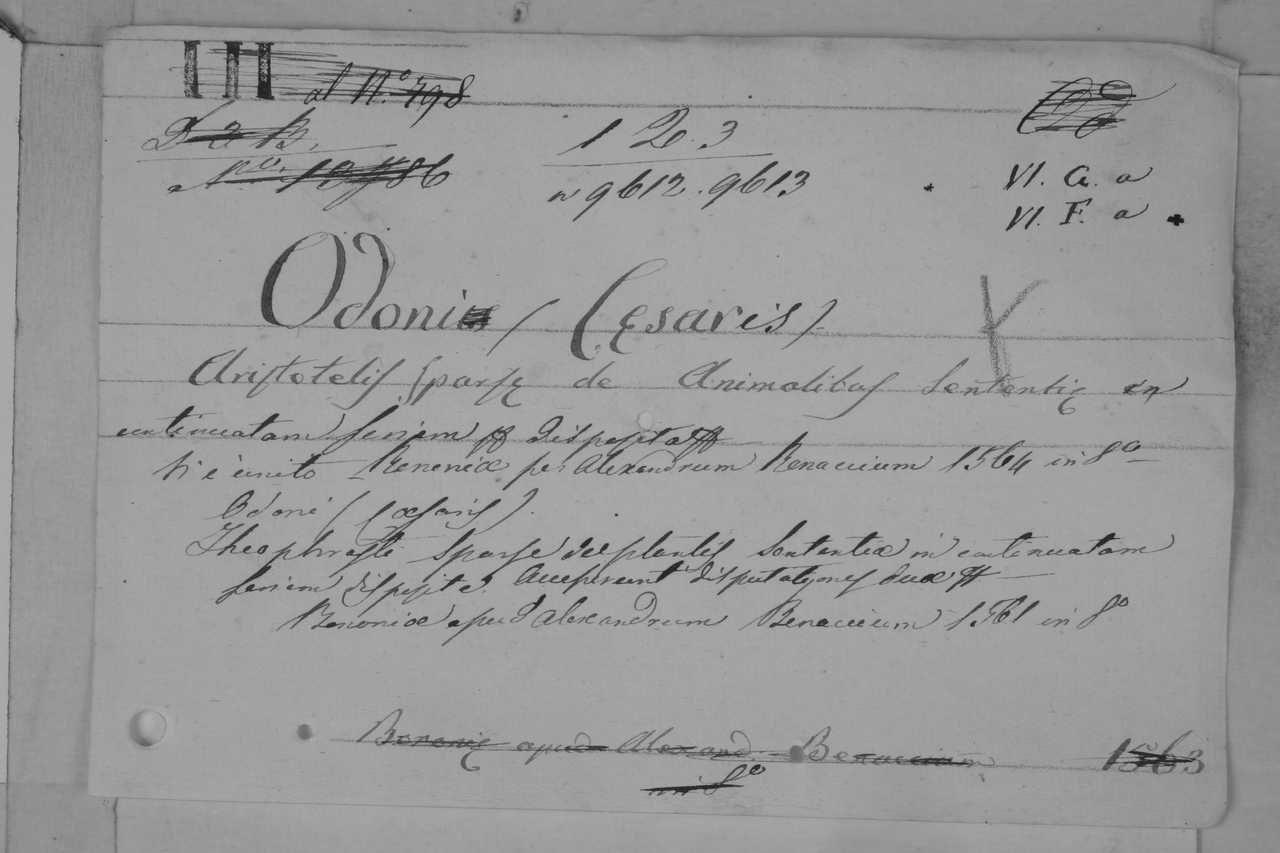 III al N.º 798
N.º 10786
1 2. 3
n 9612. 9613
VI. G. a
VI. F. a
Odoni (Cesaris)
Aristotelis sparsę de Animalibus Sententię in
continuatam seriem disposita
Si è unito Bononiæ per Alexandrum Benaccium 1564 in 8º
Odoni (Cæsaris).
Theophrasti sparse de plantis Sententiæ in continuatam
seriem disposite. Accesserunt disputationes duæ
Bononiæ apud Alexandrum Benaccium 1561 in 8º
Bononię apud Alexand. Benaccium 1563
in 8º